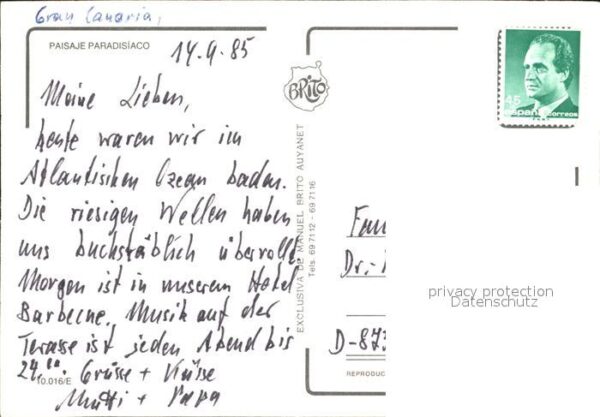 Gran Canaria,
PAISAJE PARADISÍACO
14.9.85
Meine Lieben,
heute waren wir im
Atlantischen Ozean baden.
Die riesigen Wellen haben
uns buchstäblich überrollt.
Morgen ist in unserem Hotel
Barbecue. Musik auf der
Terasse ist jeden Abend bis
24.00. Grüsse + Küsse
Mutti + Papa
10.016/E
BRITO
EXCLUSIVA DE MANUEL BRITO AUYANET
Tels. 697112 - 697116
45
españa correos
Fam
Dr.-
privacy protection
Datenschutz
D-873
REPRODUC